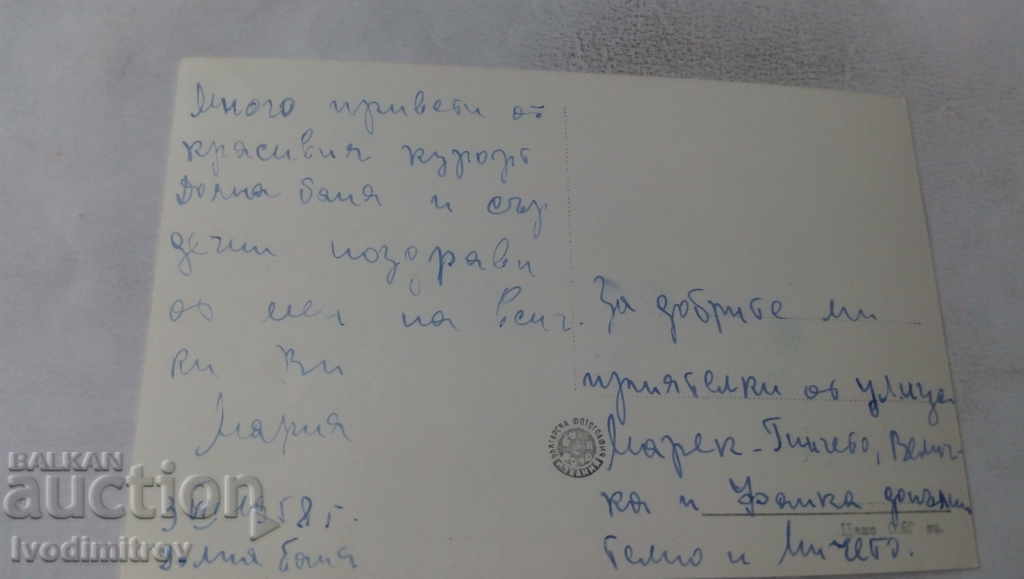 Много привети от
красивия курорт
Долна баня и сър
дечни поздрави
от мен на всич-
ки Ви
Мария
1958 г.
Долна баня
За добрите ми
приятелки от улица
Марек - Гинчето, Велич-
ка и Фанка допълни
телно и Мичето.
Цена
BALKAN
auction
Ivodimitrov